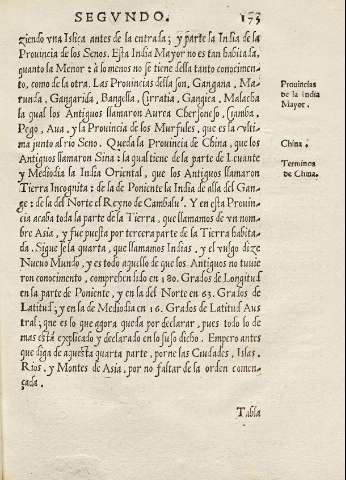 SEGVNDO. 175
ziendo vna Islica antes de la entrada; y parte la India de la
Prouincia de los Senos. Esta India Mayor no es tan habitada,
quanto la Menor: à lo menos no se tiene della tanto conocimen-
to, como de la otra. Las Prouincias della son, Gangana, Ma-
runda, Gangarida, Bangella, Cirratia, Gangica, Malacha
la qual los Antiguos llamaron Aurea Chersoneso, Ciamba,
Pego, Aua, y la Prouincia de los Murfules, que es la vlti-
ma junto al rio Seno. Queda la Prouincia de China, que los
Antiguos llamaron Sina: la qual tiene de la parte de Leuante
y Mediodia la India Oriental, que los Antiguos llamaron
Tierra Incognita: de la de Poniente la India de alla del Gan-
ge: de la del Norte el Reyno de Cambalu. Y en esta Prouin-
cia acaba toda la parte de la Tierra, que llamamos de vn nom-
bre Asia, y fue puesta por tercera parte de la Tierra habita-
da. Siguese la quarta, que llamamos Indias, y el vulgo dize
Nueuo Mundo, y es todo aquello de que los Antiguos no tuuie-
ron conocimiento, comprehendido en 180. Grados de Longitud
en la parte de Poniente, y en la del Norte en 63. Grados de
Latitud; y en la de Mediodia en 16. Grados de Latitud Aus-
tral; que es lo que agora queda por declarar, pues todo lo de
mas està explicado y declarado en lo suso dicho. Empero antes
que diga de aquesta quarta parte, porne las Ciudades, Islas,
Rios, y Montes de Asia, por no faltar de la orden comen-
çada.
Tabla
Prouincias
de la India
Mayor.
China.
Terminos
de China.